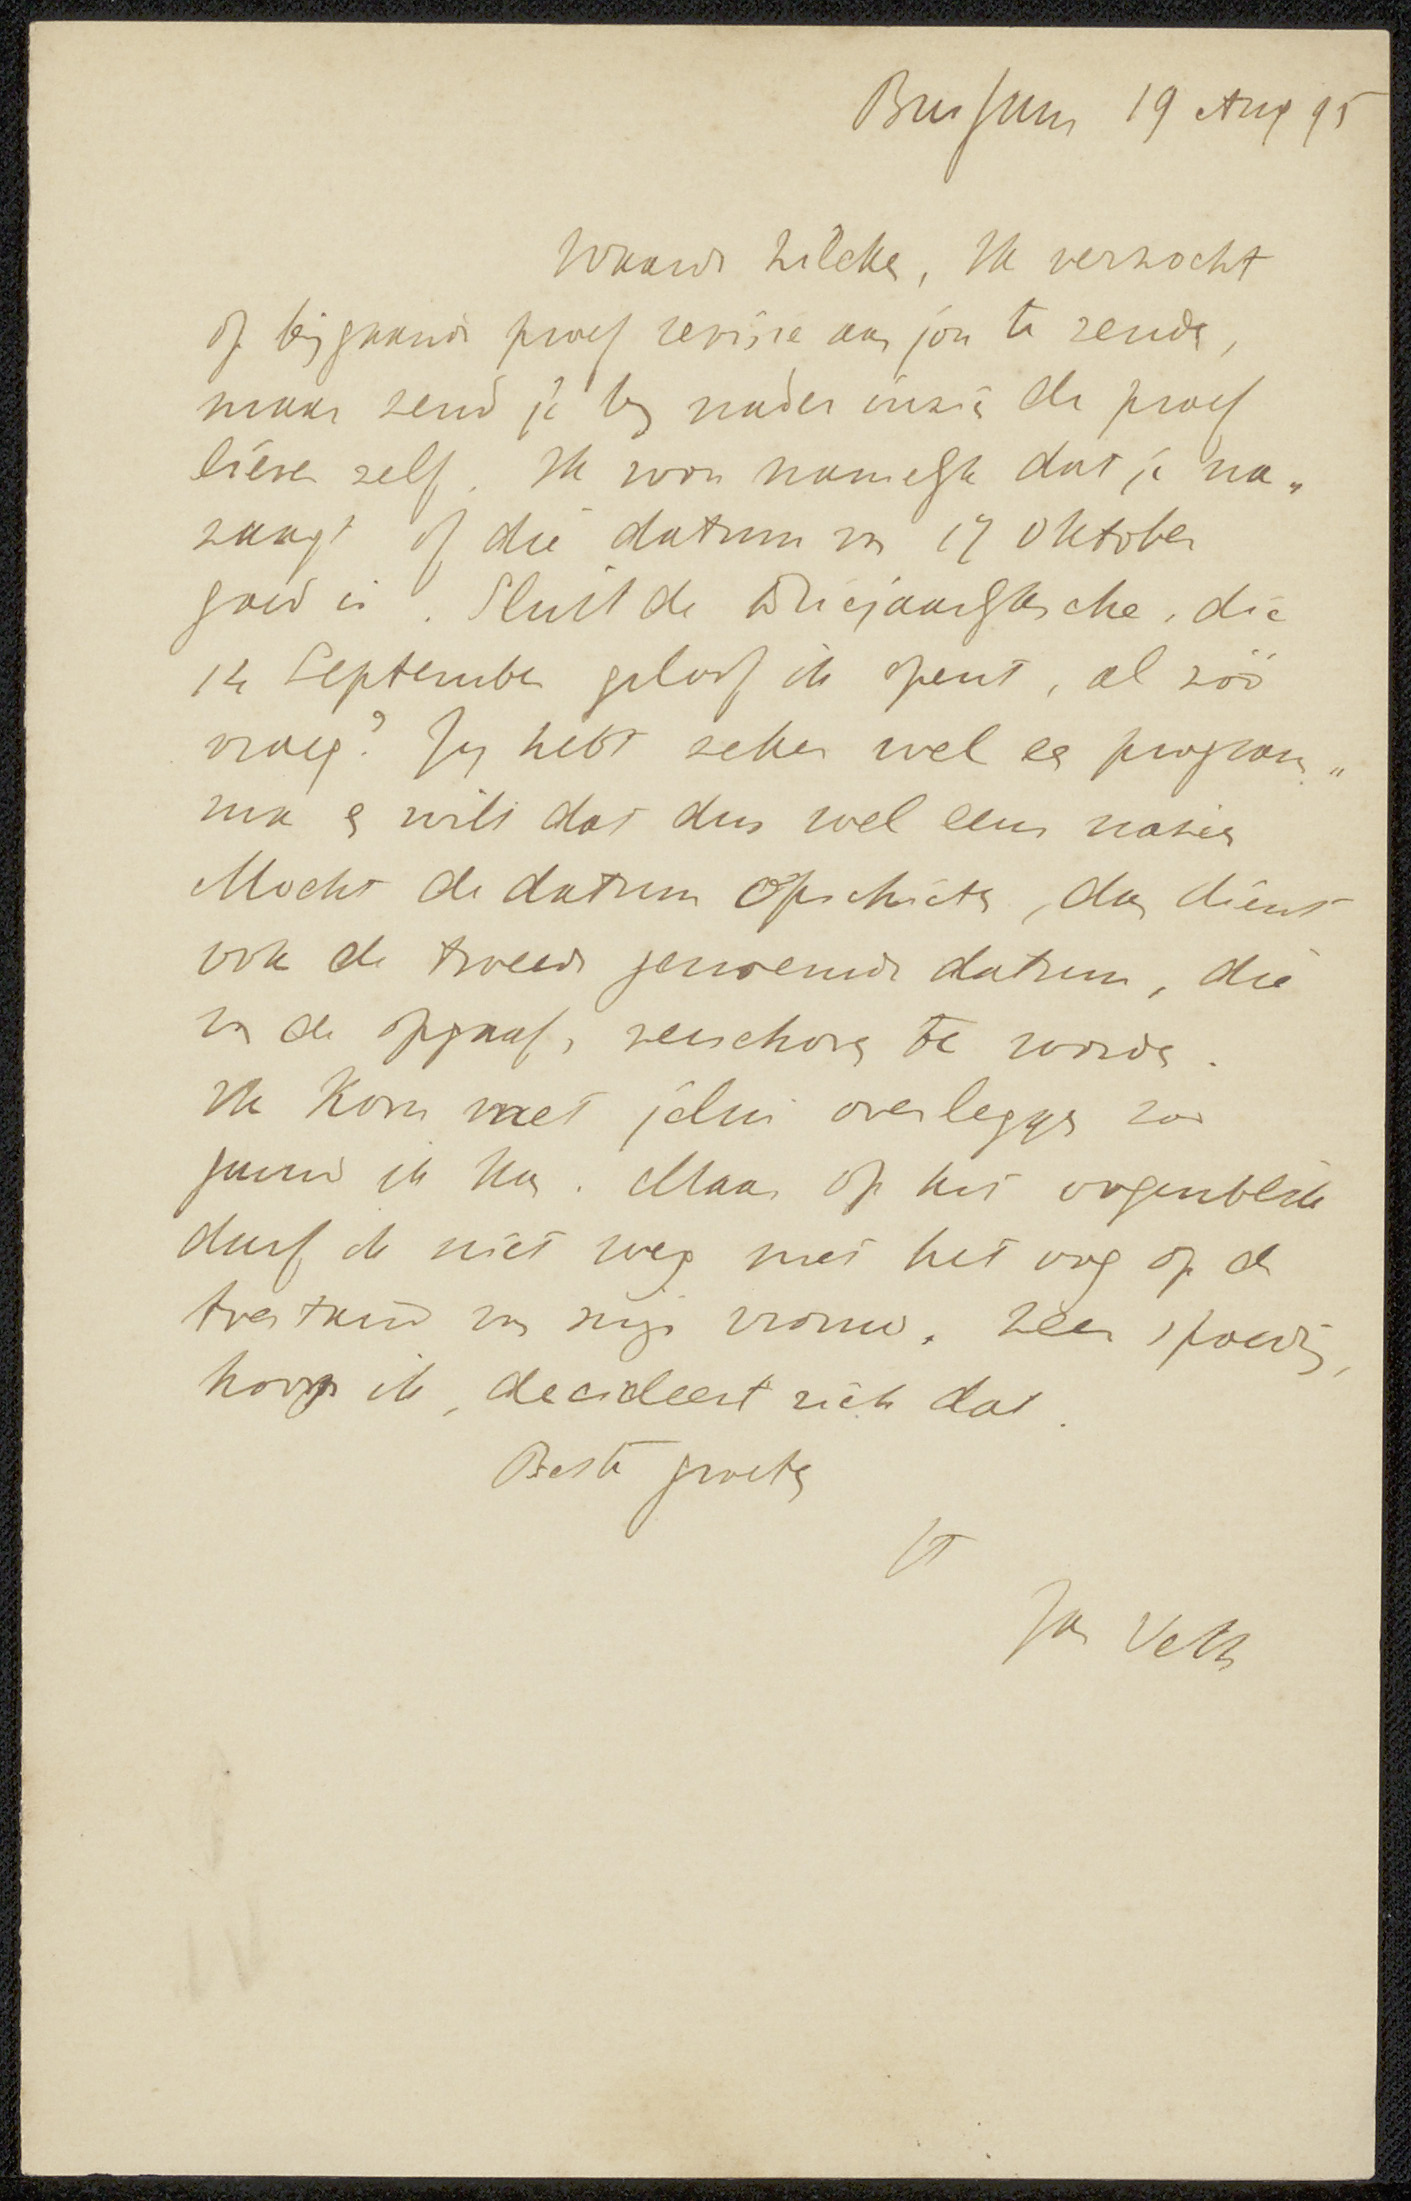 Bussum 19 Aug 95
Waarde Zilcken, Ik verzocht
op bijgaande proef revisie aan jou te zenden,
maar zend je bij nader inzien de proef
liever zelf. Ik wou namelijk dat je na„
zaagt of die datum van 17 Oktober
goed is. Sluit de driejaarlijksche, die
14 September geloof ik opent, al zóó
vroeg? Jij hebt zeker wel een program„
ma en wilt dat dus wel eens nazien
Mocht de datum opschieten, dan dient
ook de tweede genoemde datum, die
van de opgaaf, verschoven te worden.
Ik kom met jelui overleggen zoo
gauw ik kan. Maar op het oogenblik
durf ik niet weg met het oog op de
toestand van mijn vrouw. Zeer spoedig,
hoop ik, decideert zich dat.
Beste groeten
tt
Jan Veth